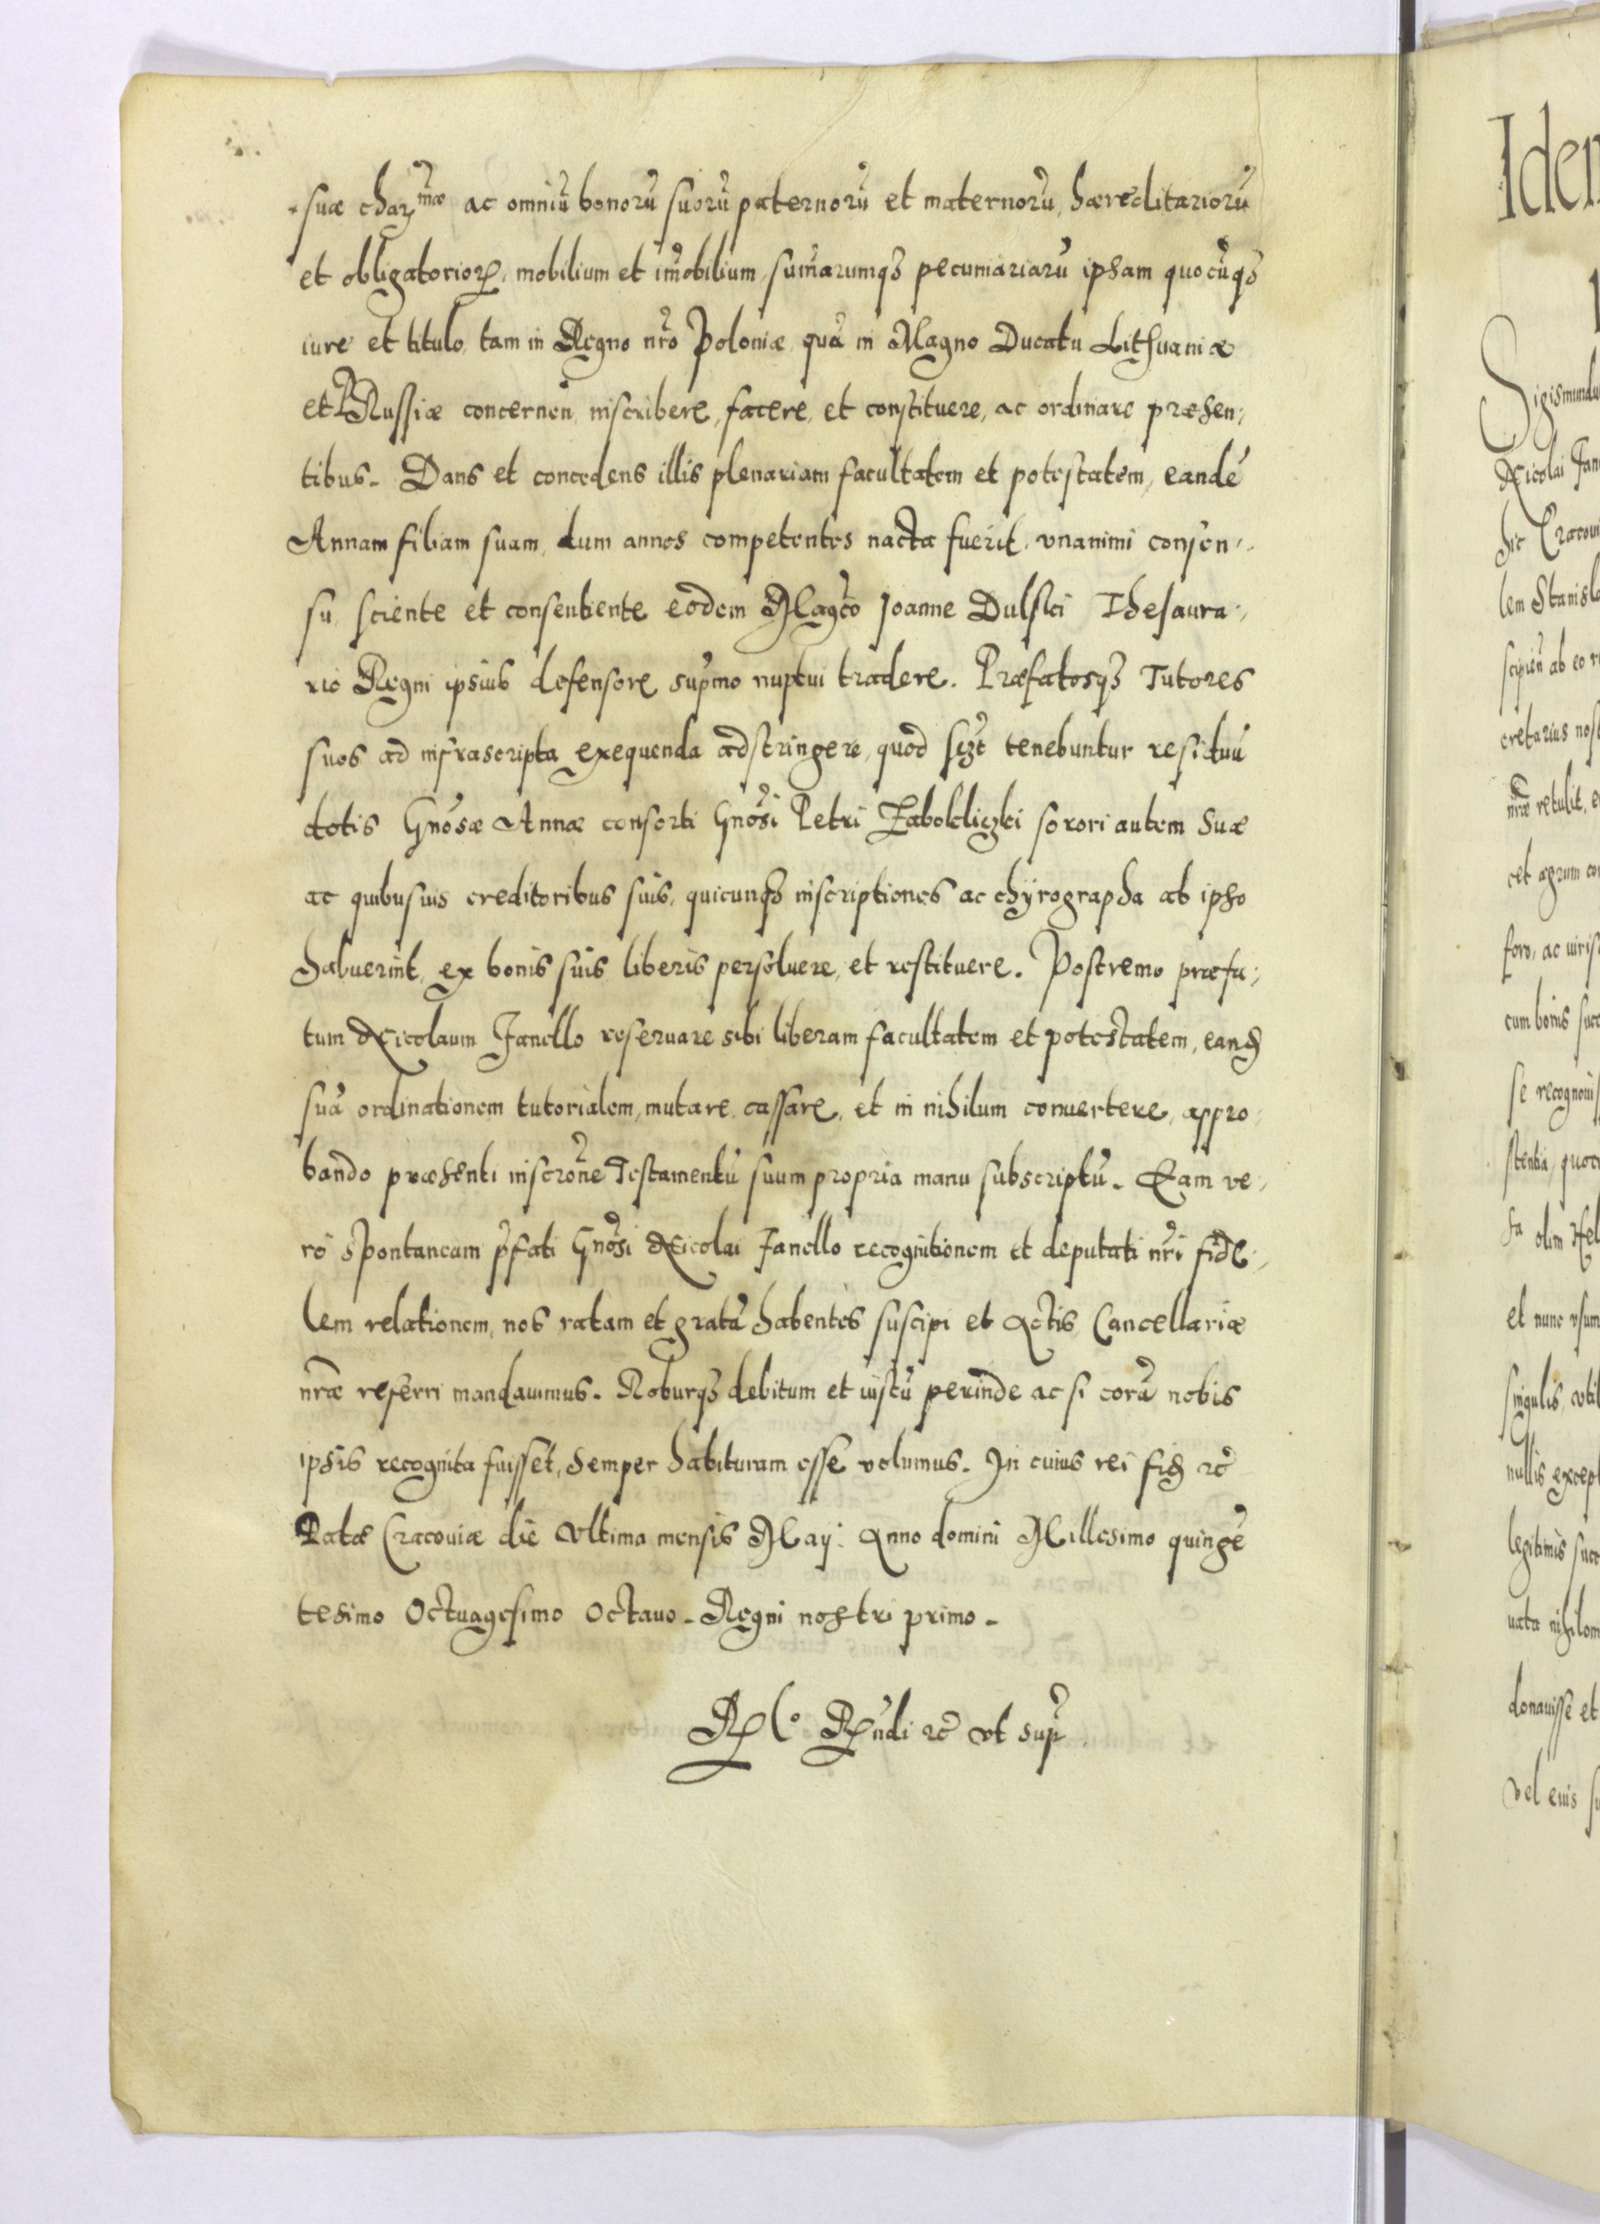 suæ char^mæ ac omniũ bonorũ suorũ paternorũ et maternorũ, hæreditariorũ
et obligatorioꝝ, mobilium et im̃obilium, sum̃arumqȝ pecuniariarũ ipsam quocũqȝ
iure et titulo, tam in Regno nr̃o Poloniæ, quã in Magno Ducatu Lithuaniæ
et Russiæ concernen̄, inscribere, facere, et constituere, ac ordinare præsen,
tibus. Dans et concedens illis plenariam facultatem et potestatem, eandẽ
Annam filiam suam, dum annos competentes nacta fuerit, vnanimi consen,
su, sciente et consentiente eodem Mag̃co Joanne Dulski Thesaura,
rio Regni ipsius defensore sup̃mo nuptui tradere. Præfatosqȝ Tutores
suos ad infrascripta exequenda adstringere, quod scȝt tenebuntur residuũ
dotis Gnõsæ Annæ consorti Gnõsi Petri Zaboklizki sorori autem suæ
ac quibusuis creditoribus suis, quicunqȝ inscriptiones ac chÿrographa ab ipso
habuerint, ex bonis suis liberis persoluere, et restituere. Postremo præfa,
tum Nicolaum Janello reseruare sibi liberam facultatem et potestatem, eandꝫ
suã ordinationem tutorialem, mutare, cassare, et in nihilum conuertere, appro,
bando præsenti inscrõne Testamentũ suum propria manu subscriptũ. Eam ve,
ro spontaneam p̃fati Gnõsi Nicolai Janello recognitionem et deputati nr̃i fide,
lem relationem, nos ratam et gratã habentes suscipi et Actis Cancellariæ
nr̃æ referri mandauimus. Roburqȝ debitum et iustũ perinde ac si corã nobis
ipsis recognita fuisset, semper habituram esse volumus. In cuius rei fidꝫ ꝛc̃
Datæ Cracouiæ die Vltima mensis Maij. Anno domini Millesimo quingẽ
tesimo Octuagesimo Octauo. Regni nostri primo.
R^lo R̃ndi ꝛc̃ vt sup̃
Iden
Sigismundu
Nicolai Jan
hic Cracoui
lem Stanisla
scipien̄ ab eo r
cretarius nost
nr̃æ retulit, e
et agrum con
foro, ac iuris
cum bonis succ
se recognouis
stentia, quoc
sa olim Hel
et nunc vsum
singulis, vtil
nullis except
legitimis succ
uata nihilom
donauisse et
vel eius su